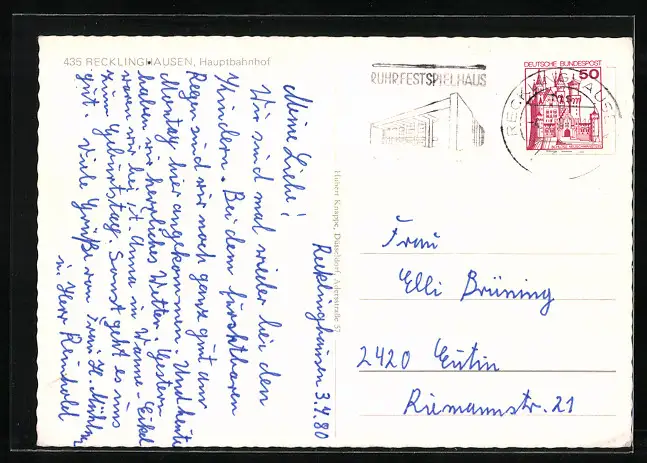 435 RECKLINGHAUSEN, Hauptbahnhof
Recklinghausen 3.4.80
Meine Liebe!
Wir sind mal wieder bei den
Kindern. Bei dem furchtbaren
Regen sind wir noch ganz gut am
Montag hier angekommen. Und heute
haben wir herrliches Wetter. Gestern
waren wir bei T. Anna in Wanne-Eickel
zum Geburtstag. Sonst geht es uns
gut. Viele Grüße von Frau H.
u. Herr Reinhold
Hubert Knappe, Düsseldorf, Adersstraße
RUHRFESTSPIELHAUS
DEUTSCHE BUNDESPOST
50
RECKLINGHAUSEN
Frau
Elli Brüning
2420 Eutin
Riemannstr. 21